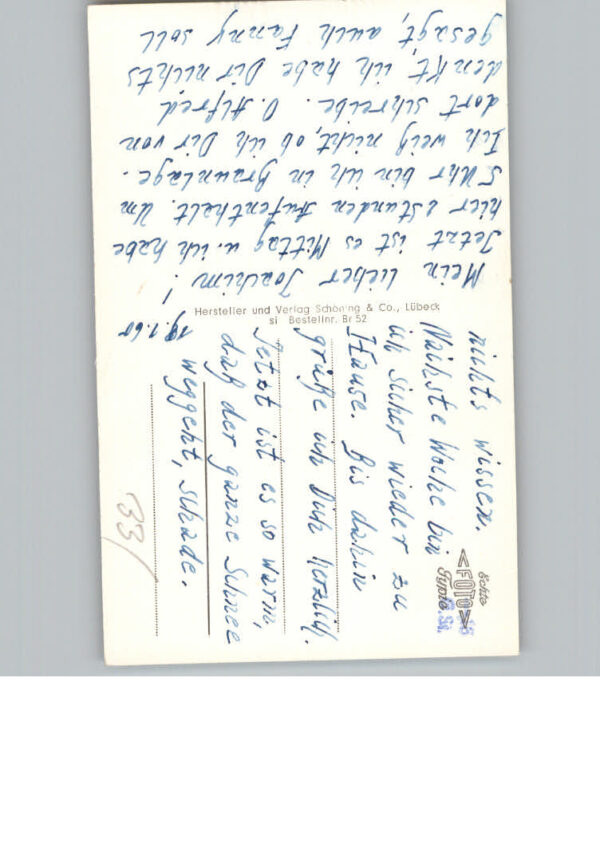 19.1.60
Mein lieber Joachim!
Jetzt ist es Mittag u. ich habe
hier 2 Stunden Aufenthalt. Um
5 Uhr bin ich in Braunlage.
Ich weiß nicht, ob ich Dir von
dort schreibe. O. Alfred
denkt, ich habe Dir nichts
gesagt, auch Fanny soll
nichts wissen.
Nächste Woche bin
ich sicher wieder zu
Hause. Bis dahin
grüße ich Dich herzlich.
Jetzt ist es so warm,
daß der ganze Schnee
weggeht, schade.
Hersteller und Verlag Schöning & Co., Lübeck
si Bestellnr. Br 52
Echte
FOTO
33/